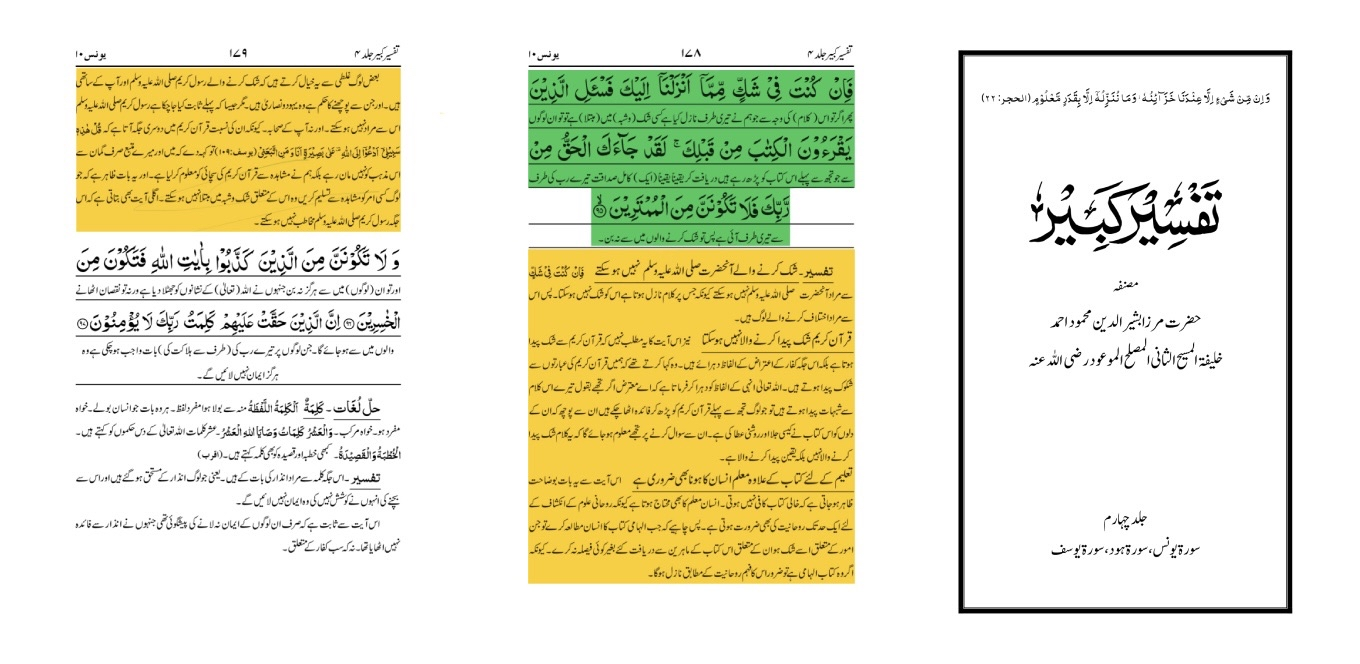 وَاِنْ مِّنْ شَیْءٍ اِلَّا عِنْدَنَا خَزَآئِنُهٗ وَمَا نُنَزِّلُهٗۤ اِلَّا بِقَدَرٍ مَّعْلُوْمٍ (الحجر:۲۲)
تَفْسِیْرِ کَبِیْر
مصنفہ
حضرت مرزا بشیر الدین محمود احمد
خلیفۃ المسیح الثانی المصلح الموعود رضی اللہ عنہ
جلد چہارم
سورۃ یونس، سورۃ ہود، سورۃ یوسف
تفسیر کبیر جلد ۴ ۱۷۸ یونس ۱۰
فَاِنْ كُنْتَ فِیْ شَكٍّ مِّمَّاۤ اَنْزَلْنَاۤ اِلَیْكَ فَسْـَٔلِ الَّذِیْنَ
پھر اگر تو اس (کلام) کی وجہ سے جو ہم نے تیری طرف نازل کیا ہے کسی شک (وشبہ) میں (مبتلا) ہے تو تو ان لوگوں
یَقْرَءُوْنَ الْكِتٰبَ مِنْ قَبْلِكَ ۚ لَقَدْ جَآءَكَ الْحَقُّ مِنْ
سے جو تجھ سے پہلے اس کتاب کو پڑھ رہے ہیں دریافت کر یقیناً یقیناً (ایک) کامل صداقت تیرے رب کی طرف
رَّبِّكَ فَلَا تَكُوْنَنَّ مِنَ الْمُمْتَرِیْنَ ۙ۹۵
سے تیری طرف آئی ہے پس تو شک کرنے والوں میں سے نہ بن۔
تفسیر۔ شک کرنے والے آنحضرت صلی اللہ علیہ وسلم نہیں ہو سکتے فَاِنْ كُنْتَ فِیْ شَكٍّ
سے مراد آنحضرت صلی اللہ علیہ وسلم نہیں ہو سکتے کیونکہ جس پر کلام نازل ہوتا ہے اس کو شک نہیں ہو سکتا۔ پس اس
سے مراد اختلاف کرنے والے لوگ ہیں۔
قرآن کریم شک پیدا کرنے والا نہیں ہو سکتا نیز اس آیت کا یہ مطلب نہیں کہ قرآن کریم سے شک پیدا
ہوتا ہے بلکہ اس جگہ کفار کے اعتراض کے الفاظ دہرائے ہیں۔ وہ کہا کرتے تھے کہ ہمیں قرآن کریم کی عبارتوں سے
شکوک پیدا ہوتے ہیں۔ اللہ تعالیٰ انہی کے الفاظ کو دہرا کر فرماتا ہے کہ اے معترض اگر تجھے بقول تیرے اس کلام
سے شبہات پیدا ہوتے ہیں تو جو لوگ تجھ سے پہلے قرآن کریم کو پڑھ کر فائدہ اٹھا چکے ہیں ان سے پوچھ کہ ان کے
دلوں کو اس کتاب نے کیسی جلا اور روشنی عطا کی ہے۔ ان سے سوال کرنے پر تجھے معلوم ہو جائے گا کہ یہ کلام شک پیدا
کرنے والا نہیں بلکہ یقین پیدا کرنے والا ہے۔
تعلیم کے لئے کتاب کے علاوہ معلم انسان کا ہونا بھی ضروری ہے اس آیت سے یہ بات بوضاحت
ظاہر ہو جاتی ہے کہ خالی کتاب کافی نہیں ہوتی۔ انسان معلم کا بھی محتاج ہوتا ہے کیونکہ روحانی علوم کے انکشاف کے
لئے ایک حد تک روحانیت کی بھی ضرورت ہوتی ہے۔ پس چاہیے کہ جب الہامی کتاب کا انسان مطالعہ کرے تو جن
امور کے متعلق اسے شک ہو ان کے متعلق اس کتاب کے ماہرین سے دریافت کئے بغیر کوئی فیصلہ نہ کرے۔ کیونکہ
اگر وہ کتاب الہامی ہے تو ضرور اس کا فہم روحانیت کے مطابق نازل ہو گا۔
تفسیر کبیر جلد ۴ ۱۷۹ یونس ۱۰
بعض لوگ غلطی سے یہ خیال کرتے ہیں کہ شک کرنے والے رسول کریم صلی اللہ علیہ وسلم اور آپ کے ساتھی
ہیں۔ اور جن سے پوچھنے کا حکم ہے وہ یہود و نصاریٰ ہیں۔ مگر جیسا کہ پہلے ثابت کیا جا چکا ہے رسول کریم صلی اللہ علیہ وسلم
اس سے مراد نہیں ہو سکتے۔ اور نہ آپ کے صحابہ۔ کیونکہ ان کی نسبت قرآن کریم میں دوسری جگہ آتا ہے کہ قُلْ هٰذِهٖ
سَبِیْلِیْۤ اَدْعُوْۤا اِلَی اللّٰهِ عَلٰی بَصِیْرَةٍ اَنَا وَ مَنِ اتَّبَعَنِیْ (یوسف:۱۰۹) تو کہہ دے کہ میں اور میرے متبع صرف گمان سے
اس مذہب کو نہیں مان رہے بلکہ ہم نے مشاہدہ سے قرآن کریم کی سچائی کو معلوم کر لیا ہے۔ اور یہ بات ظاہر ہے کہ جو
لوگ کسی امر کو مشاہدہ سے تسلیم کریں وہ اس کے متعلق شک وشبہ میں مبتلا نہیں ہو سکتے۔ اگلی آیت بھی بتاتی ہے کہ اس
جگہ رسول کریم صلی اللہ علیہ وسلم مخاطب نہیں ہو سکتے۔
وَ لَا تَكُوْنَنَّ مِنَ الَّذِیْنَ كَذَّبُوْا بِاٰیٰتِ اللّٰهِ فَتَكُوْنَ مِنَ
اور تو ان (لوگوں) میں سے ہرگز نہ بن جنہوں نے اللہ (تعالیٰ) کے نشانوں کو جھٹلا دیا ہے ورنہ تو نقصان اٹھانے
الْخٰسِرِیْنَ ۹۶ اِنَّ الَّذِیْنَ حَقَّتْ عَلَیْهِمْ كَلِمَتُ رَبِّكَ لَا یُؤْمِنُوْنَ ۙ۹۷
والوں میں سے ہو جائے گا۔ جن لوگوں پر تیرے رب کی (طرف سے ہلاکت کی) بات واجب ہو چکی ہے وہ
ہرگز ایمان نہیں لائیں گے۔
حلّ لُغَات۔ كَلِمَةٌ اَلْكَلِمَةُ اللَّفْظَةُ منہ سے بولا ہوا مفرد لفظ۔ ہر وہ بات جو انسان بولے۔ خواہ
مفرد ہو۔ خواہ مرکب۔ وَالْعَشْرُ كَلِمَاتٍ وَصَایَا اللّٰهِ الْعَشْرُ۔ عشر کلمات اللہ تعالیٰ کے دس حکموں کو کہتے ہیں۔
اَلْخُطْبَةُ وَالْقَصِیْدَةُ۔ کبھی خطبہ اور قصیدہ کو بھی کلمہ کہتے ہیں۔ (اقرب)
تفسیر۔ اس جگہ کلمہ سے مراد انذار کی بات کے ہیں۔ یعنی جو لوگ انذار کے مستحق ہو گئے ہیں اور اس سے
بچنے کی انہوں نے کوشش نہیں کی وہ ایمان نہیں لائیں گے۔
اس آیت سے ثابت ہے کہ صرف ان لوگوں کے ایمان نہ لانے کی پیشگوئی تھی جنہوں نے انذار سے فائدہ
نہیں اٹھایا تھا۔ نہ کہ سب کفار کے متعلق۔